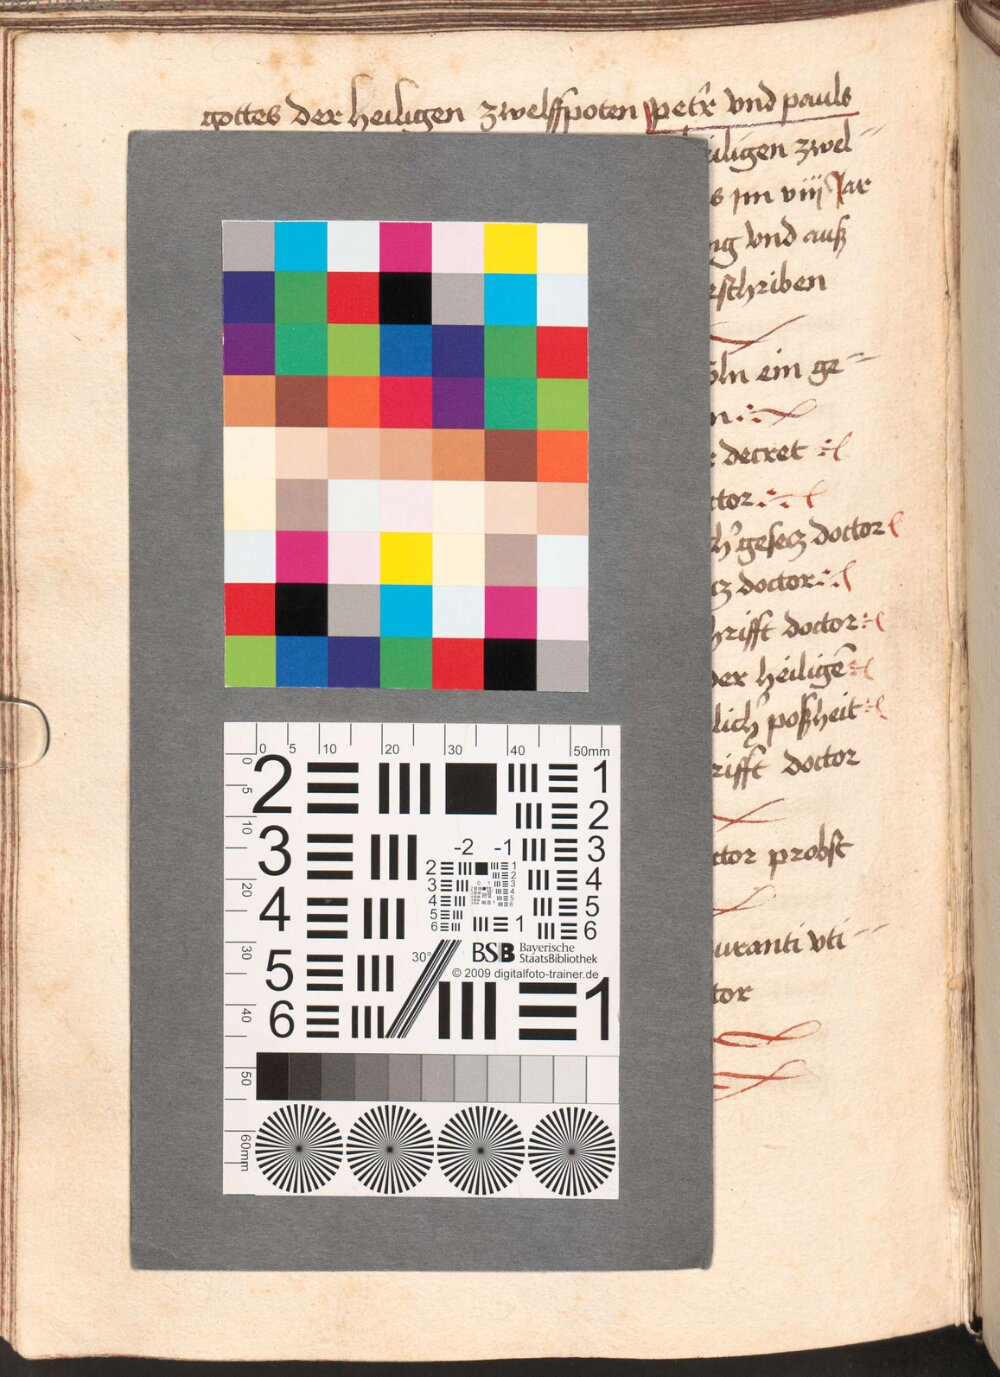 gottes der heiligen zwelffpoten petr vnd pauls
eiligen zwel
s jm viij Jar
ng vnd auß
eschriben
öln ein ge
n
decret
ctor
h gesecz doctor
cz doctor
hrifft doctor
der heiligen
lich poßheit
rifft doctor
ctor probst
uranti vti
tor
0 5 10 20 30 40 50mm
0 5 10 20 30 40 50 60mm
2 1
2
3 3
-2 -1
4 4
5
6
5
6
30°
BSB Bayerische
StaatsBibliothek
© 2009 digitalfoto-trainer.de
1